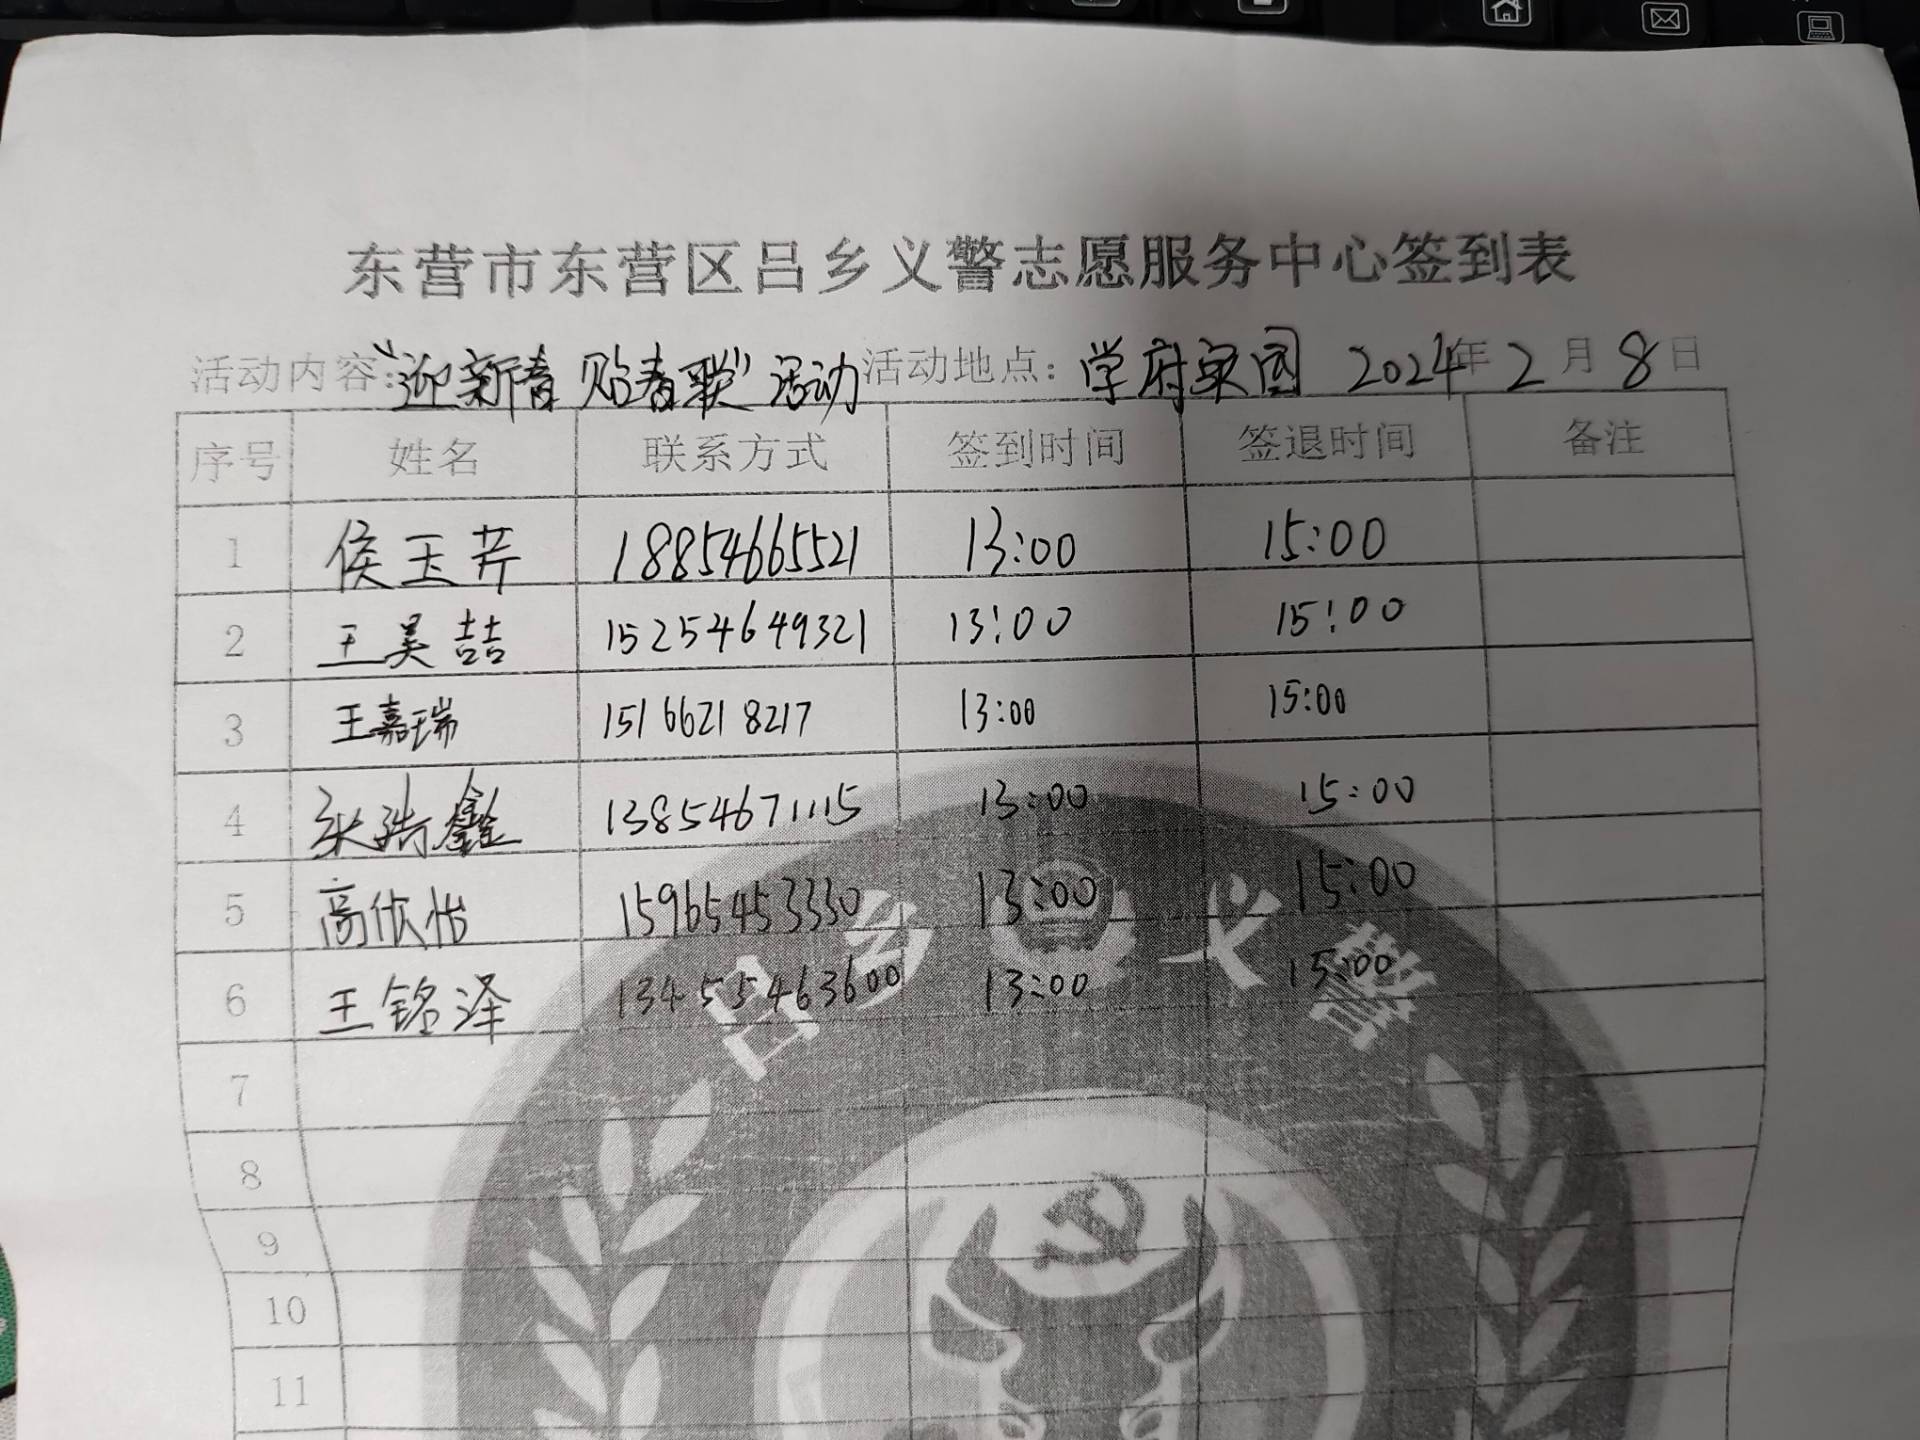 东营市东营区吕乡义警志愿服务中心签到表
活动内容:“迎新春 贴春联”活动 活动地点: 学府家园 2024年 2 月 8 日
序号 姓名 联系方式 签到时间 签退时间 备注
1 侯玉芹 18854665521 13:00 15:00
2 王昊喆 15254649321 13:00 15:00
3 王嘉瑞 15166218217 13:00 15:00
4 张浩鑫 13854671115 13:00 15:00
5 高欣怡 15965453330 13:00 15:00
6 王铭泽 13455463600 13:00 15:00
吕乡义警
7
8
9
10
11